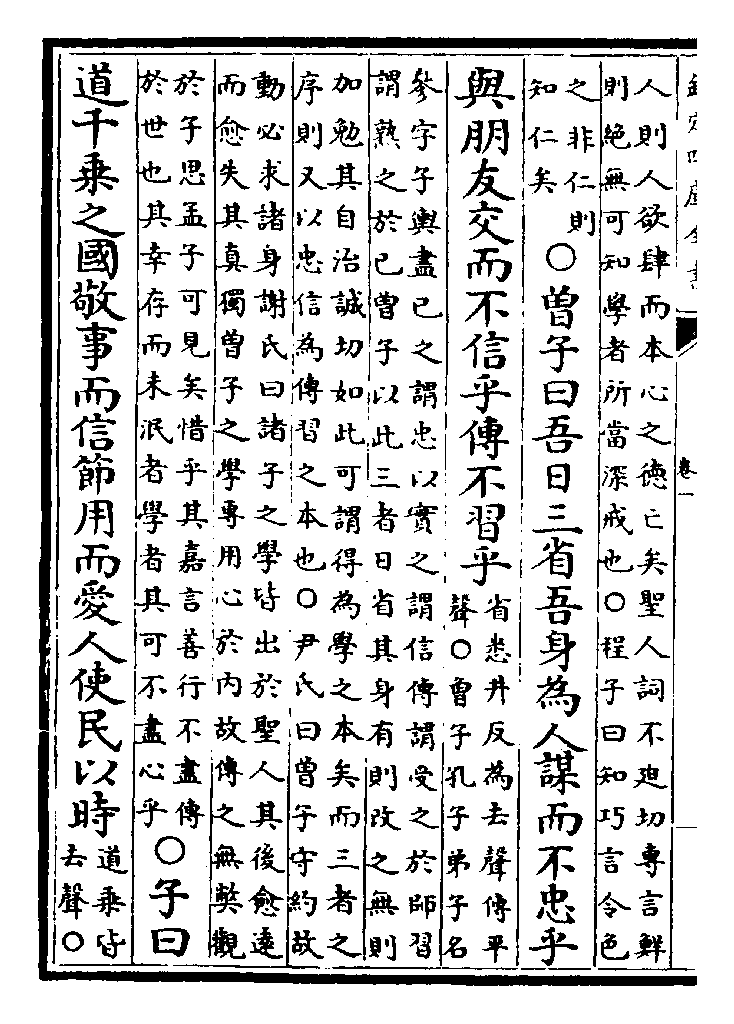 欽定四庫全書
卷一
人則人欲肆而本心之德亡矣聖人詞不迫切專言鮮
則絶無可知學者所當深戒也○程子曰知巧言令色
之非仁則
知仁矣
○曽子曰吾日三省吾身為人謀而不忠乎
與朋友交而不信乎傳不習乎
省悉井反為去聲傳平
聲○曽子孔子弟子名
參字子輿盡已之謂忠以實之謂信傳謂受之於師習
謂熟之於已曽子以此三者日省其身有則改之無則
加勉其自治誠切如此可謂得為學之本矣而三者之
序則又以忠信為傳習之本也○尹氏曰曽子守約故
動必求諸身謝氏曰諸子之學皆出於聖人其後愈逺
而愈失其真獨曽子之學專用心於内故傳之無弊觀
於子思孟子可見矣惜乎其嘉言善行不盡傳
於世也其幸存而未泯者學者其可不盡心乎
○子曰
道千乗之國敬事而信節用而愛人使民以時
道乗皆
去聲○